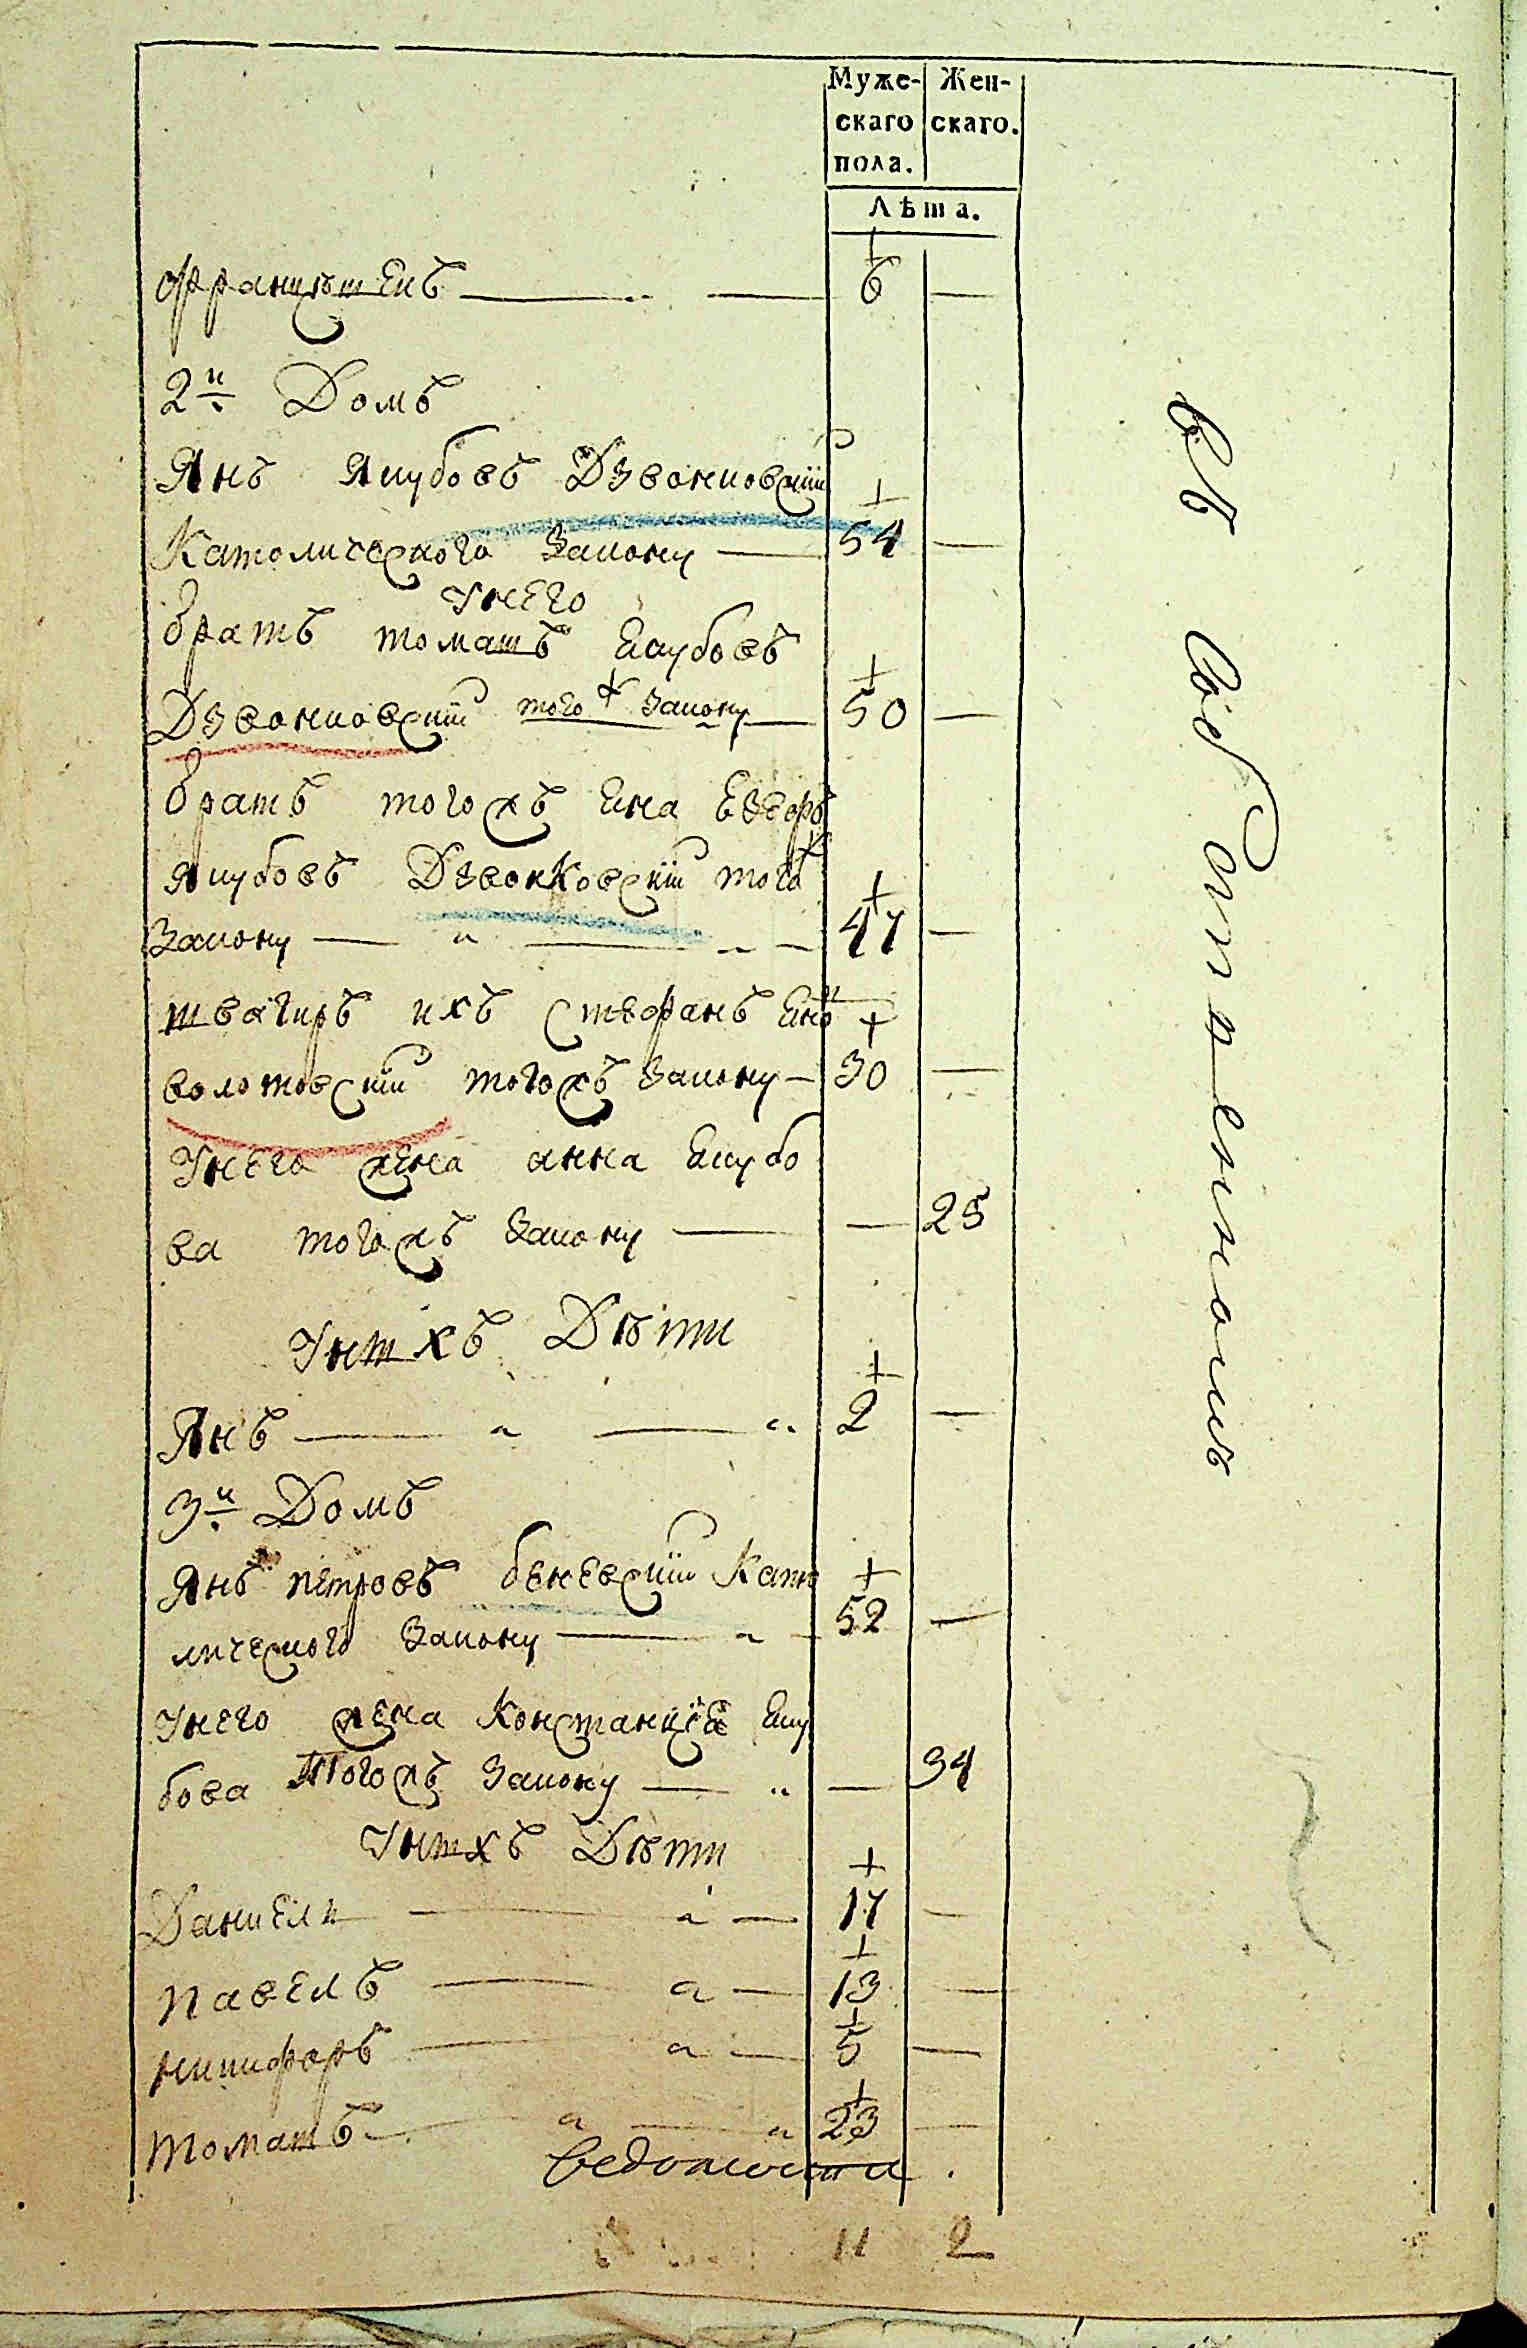 Муже- Жен-
скаго скаго.
пола.
Лѣта.
Францѣшекъ 6 —
2й Домъ
Янъ Якубовъ Дзвонковскїй
Католического закону — 54 —
У него
братъ томашъ Якубовъ
Дзвонковскїй того ж закону — 50 —
братъ тогожъ Яна
Якубовъ Дзвонковскїй того ж
закону — 47 —
швагиръ ихъ Стефанъ
тогожъ закону — 30 —
У него жена анна Якубо
ва тогожъ закону — — 25
У нихъ Дѣти
Янъ — 2 —
3й Домъ
Янъ петровъ беневскїй Като
лического закону — 52 —
У него жена Констанцїя Яку
бова тогожъ закону — — 34
У нихъ Дѣти
Даниель — 17 —
павелъ — 13 —
никифоръ — 5 —
томашъ — 23 —
ведомости
11 2
въ